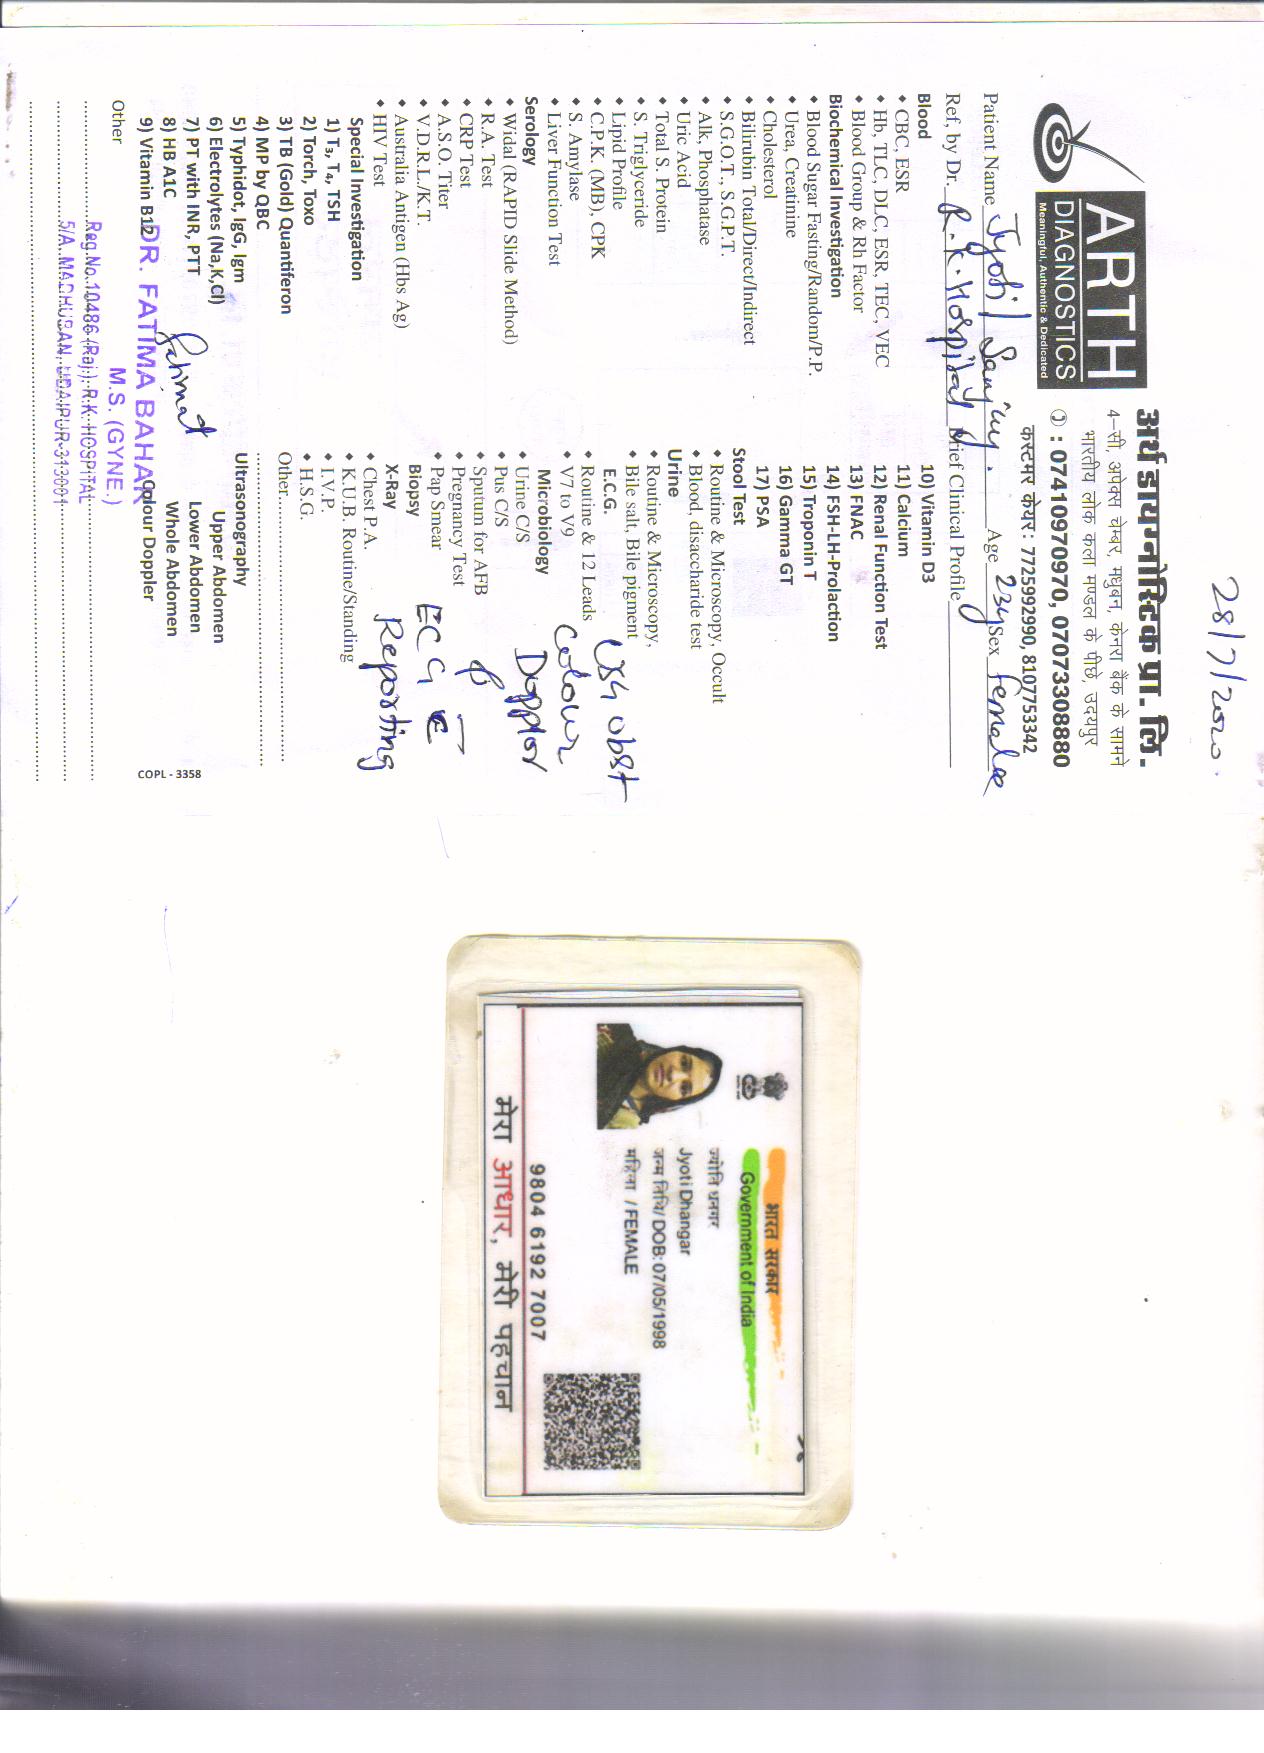 28/7/2020
ARTH
DIAGNOSTICS
Meaningful, Authentic & Dedicated
अर्थ डायग्नोस्टिक प्रा. लि.
4–सी, अपेक्स चेम्बर, मधुबन, केनरा बैंक के सामने
भारतीय लोक कला मण्डल के पीछे, उदयपुर
✆ : 07410970970, 07073308880
कस्टमर केयर : 7725992990, 8107753342
Patient Name Jyoti / Sanjay. Age 23y Sex Female
Ref, by Dr. R.K. Hospital Brief Clinical Profile
Blood
• CBC, ESR
• Hb, TLC, DLC, ESR, TEC, VEC
• Blood Group & Rh Factor
Biochemical Investigation
• Blood Sugar Fasting/Random/P.P.
• Urea, Creatinine
• Cholesterol
• Bilirubin Total/Direct/Indirect
• S.G.O.T., S.G.P.T.
• Alk, Phosphatase
• Uric Acid
• Total S. Protein
• S. Triglyceride
• Lipid Profile
• C.P.K. (MB), CPK
• S. Amylase
• Liver Function Test
Serology
• Widal (RAPID Slide Method)
• R.A. Test
• CRP Test
• A.S.O. Titer
• V.D.R.L./K.T.
• Australia Antigen (Hbs Ag)
• HIV Test
Special Investigation
1) T3, T4, TSH
2) Torch, Toxo
3) TB (Gold) Quantiferon
4) MP by QBC
5) Typhidot, IgG, Igm
6) Electrolytes (Na,K,Cl)
7) PT with INR, PTT
8) HB A1C
9) Vitamin B12
Other
10) Vitamin D3
11) Calcium
12) Renal Function Test
13) FNAC
14) FSH-LH-Prolaction
15) Troponin T
16) Gamma GT
17) PSA
Stool Test
• Routine & Microscopy, Occult
• Blood, disaccharide test
Urine
• Routine & Microscopy,
• Bile salt, Bile pigment
E.C.G.
• Routine & 12 Leads
• V7 to V9
Microbiology
• Urine C/S
• Pus C/S
• Sputum for AFB
• Pregnancy Test
• Pap Smear
Biopsy
X-Ray
• Chest P.A.
• K.U.B. Routine/Standing
• I.V.P.
• H.S.G.
Other
Ultrasonography
Upper Abdomen
Lower Abdomen
Whole Abdomen
Colour Doppler
USG obst
Colour
Doppler
ECG
Reporting
Fatima
DR. FATIMA BAHAR
M.S. (GYNE.)
Reg.No.10486 (Raj.) R.K. HOSPITAL
5/A MADHUBAN, UDAIPUR-313001
COPL - 3358
भारत सरकार
Government of India
ज्योति धनगर
Jyoti Dhangar
जन्म तिथि/ DOB: 07/05/1998
महिला / FEMALE
9804 6192 7007
मेरा आधार, मेरी पहचान